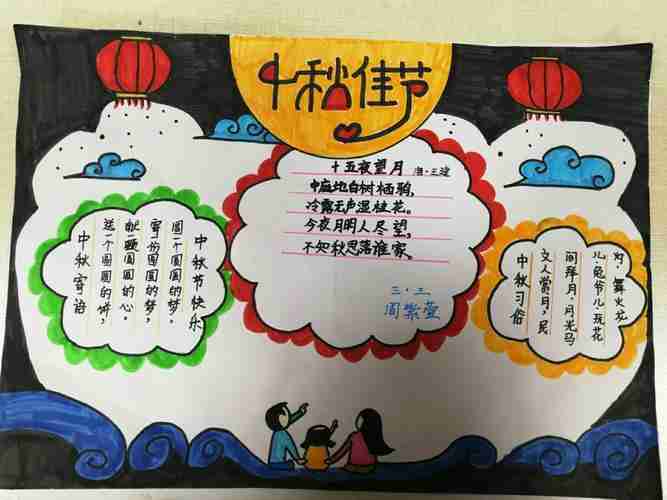 中秋佳节
十五夜望月 唐·王建
中庭地白树栖鸦,
冷露无声湿桂花。
今夜月明人尽望,
不知秋思落谁家。
三·二
周紫萱
中秋寄语
送一个圆圆的饼,
献一颗圆圆的心,
享一份圆圆的梦,
圆一个圆圆的梦。
中秋节快乐
中秋习俗
文人赏月,民
间拜月,月光马
儿,兔爷儿,玩花
灯,舞火龙